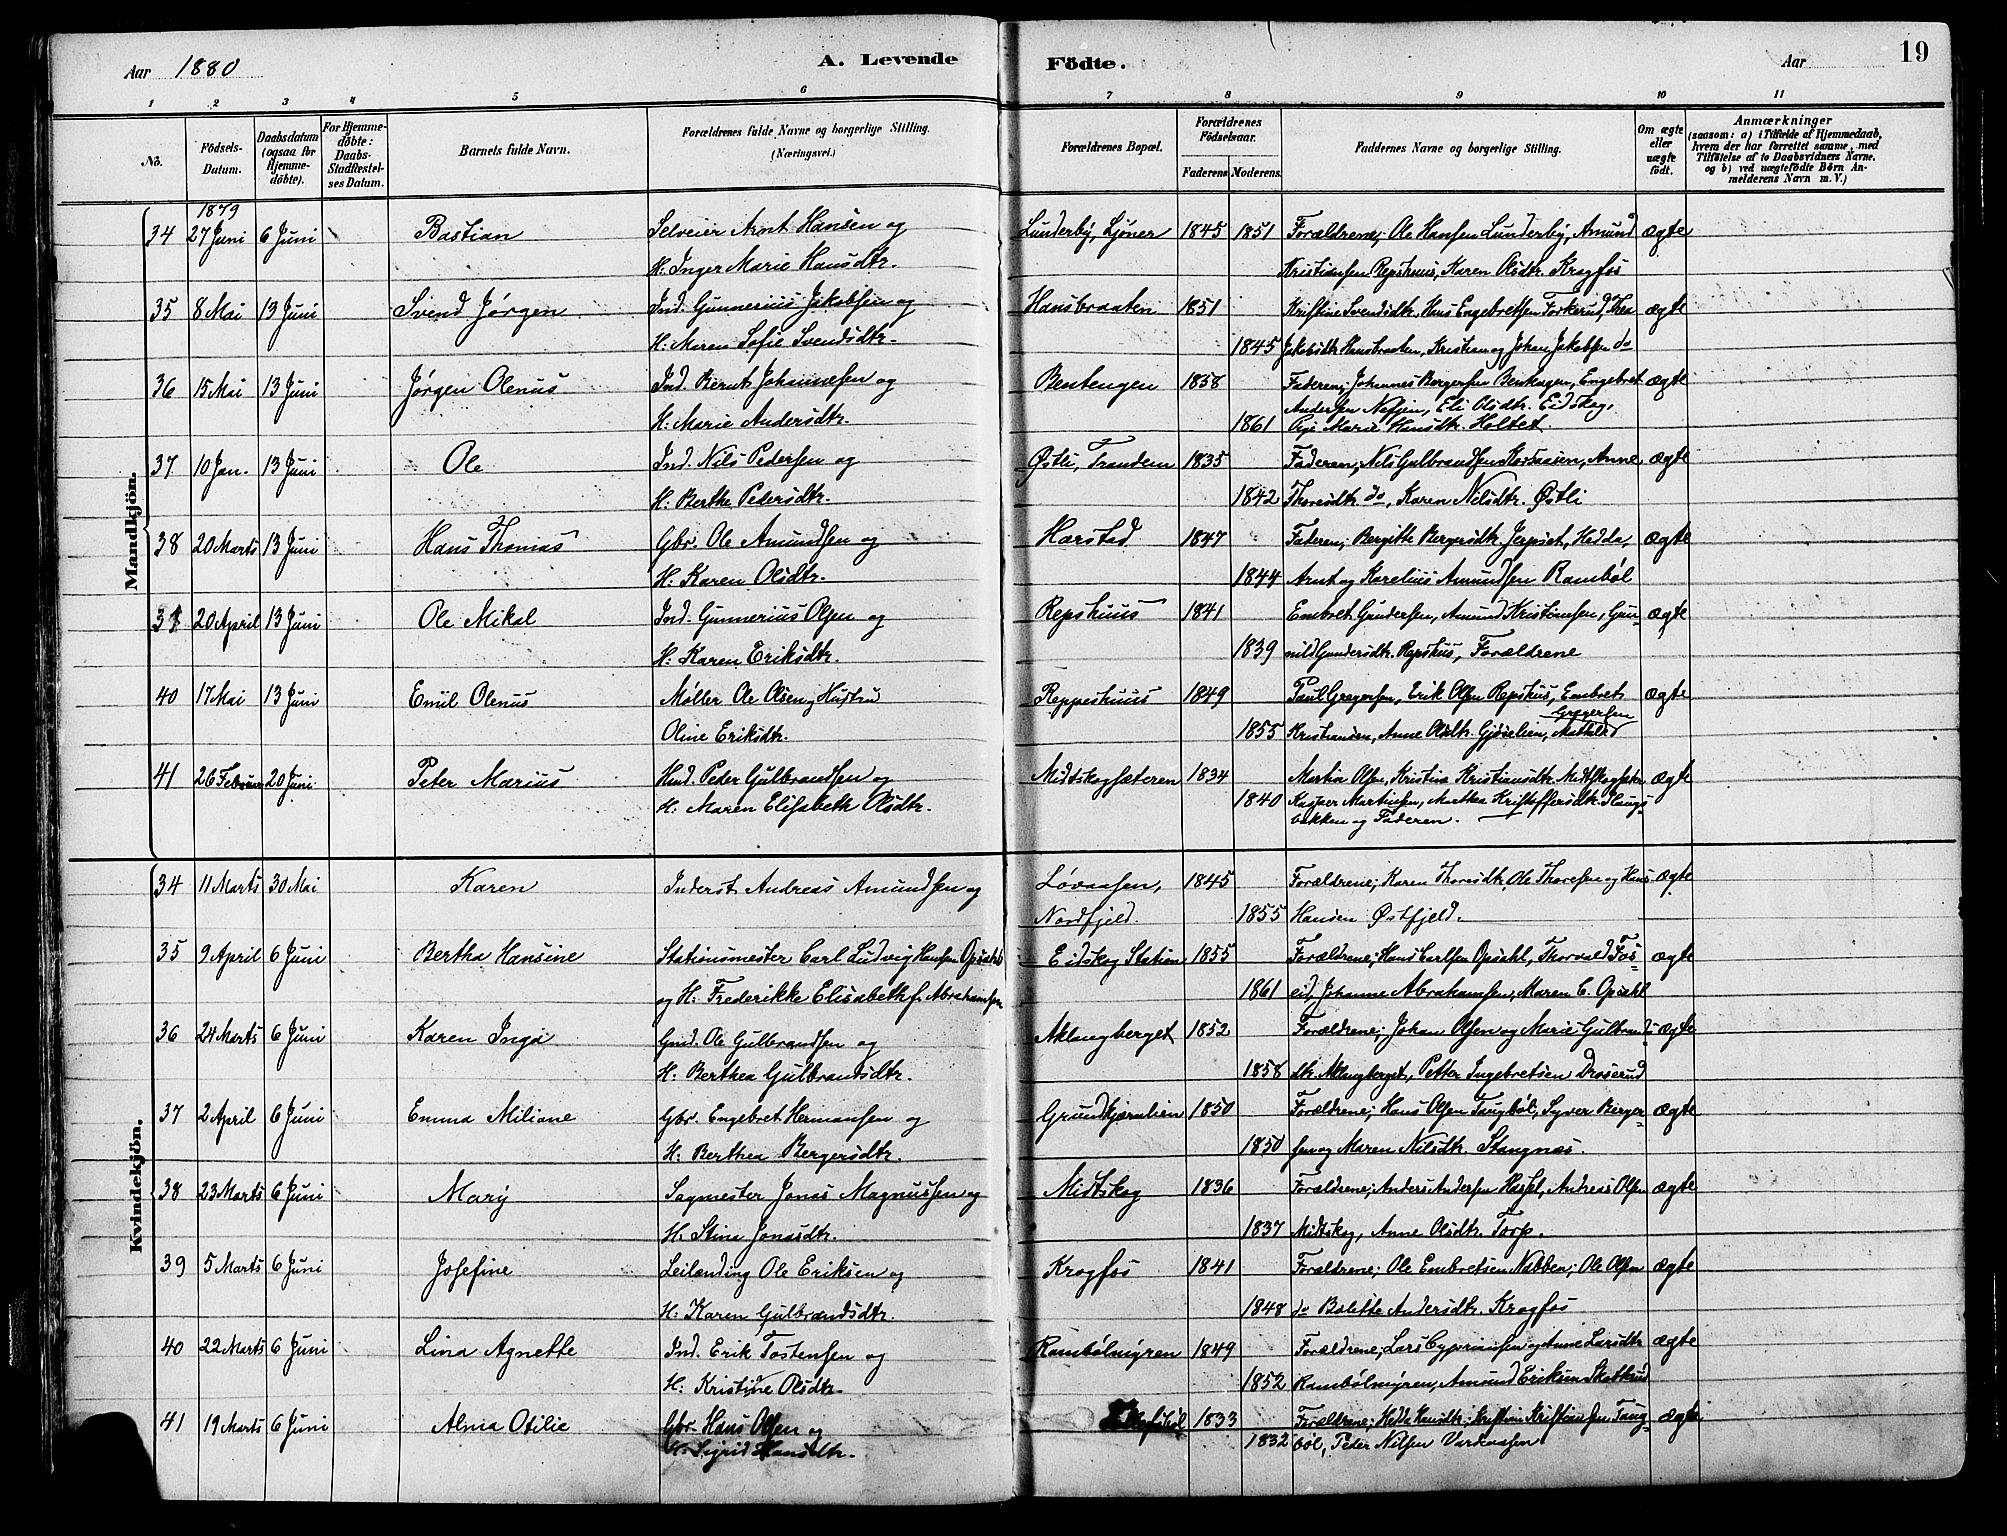 Aar 1880 A. Levende Födte. Aar 19
1 2 3 4 5 6 7 8 9 10 11
No. Födsels-Datum. Daabsdatum (ogsaa for Hjemme-döbte). For Hjemme-döbte: Daabs-Stadfæstel-ses Datum. Barnets fulde Navn. Forældrenes fulde Navne og borgerlige Stilling. (Næringsvei.) Forældrenes Bopæl. Forældrenes Födselsaar. Faderens Moderens. Faddernes Navne og borgerlige Stilling. Om ægte eller uægte födt. Anmærkninger (saasom: a) i Tilfælde af Hjemmedaab, hvem der har forrettet samme, med Tilföielse af to Daabsvidners Navne, og b) ved uægtefödte Börn An-melderens Navn m. V.)
Mandkjön.
1879
34 27 Juni 6 Juni Bastian Selveier Arnt Hansen og Lunderby, Sjöner 1845 1851 Forældrene; Ole Hansen Lunderby, Amund ægte
H: Inger Marie Hansdtr. Kristiansen Repshuus, Karen Olsdtr. Krogfos
35 8 Mai 13 Juni Svend Jørgen Ind. Gunnerius Jakobsen og Hansbraaten 1851 Kristine Svendsdtr. Hans Engebretsen Torkerud, Thea ægte
H: Maren Sofie Svendsdtr. 1845 Jakobsdtr. Hansbraaten, Kristian og Johan Jakobsen do
36 15 Mai 13 Juni Jørgen Olenus Ind. Bernt Johannesen og Bentengen 1858 Faderen; Johannes Borgersen Bentengen, Engebret ægte
Andersen Nessen, Eli Olsdtr. Eidskog,
H: Marie Andersdtr. 1861 Pige Marie Hansdtr. Holtet
37 10 Jan. 13 Juni Ole Ind. Nils Pedersen og Østli, Trandem 1835 Faderen; Nils Gulbrandsen Kortaasen, Anne ægte
H: Berthe Petersdtr. 1842 Thoresdtr. do, Karen Nilsdtr. Østli
38 20 Marts 13 Juni Hans Thomas Gbr. Ole Amundsen og Harstad 1847 Faderen; Bergitte Bergersdtr. Jerpset, Hedda, ægte
H: Karen Olsdtr. 1844 Arnt og Karelius Amundsen Rambøl
39 20 April 13 Juni Ole Mikal Ind. Gunnerius Olsen og Repshuus 1841 Embret Gundersen, Amund Kristiansen, Gun- ægte
H: Karen Eriksdtr. 1839 nild Gundersdtr. Repshus, Forældrene
40 17 Mai 13 Juni Emil Olenus Møller Ole Olsen og Hustru Reppeshuus 1849 Paul Gregersen, Erik Olsen Repshus, Embret ægte
Gregersen
Oline Eriksdtr. 1855 Kristiansen, Anne Olsdtr. Gjøselien, Mathild
41 26 Februar 20 Juni Peter Marius Hmd. Peder Gulbrandsen og Midtskogsæteren 1834 Martin Olsen, Kristine Kristiansdtr. Midtskogsæter ægte
H: Maren Elisabeth Olsdtr. 1840 Kasper Martinsen, Marthea Kristoffersdtr. Haugs-
bakken og Faderen.
Kvindekjön.
34 11 Marts 30 Mai Karen Inderst. Andreas Amundsen og Løvaasen, 1845 Forældrene; Karen Thoresdtr. Ole Thoresen og Hans ægte
Nordfjeld. 1855 Hansen Østfjeld.
35 9 April 6 Juni Bertha Hansine Stationsmester Carl Ludvig Hansen Opsahl Eidskog Station 1855 Forældrene; Hans Carlsen Opsahl, Thorvald Fos- ægte
og H: Frederikke Elisabeth f. Abrahamsen 1861 eid, Johanne Abrahamsen, Maren C. Opsahl
36 24 Marts 6 Juni Karen Inga Gmd. Ole Gulbrandsen og Aklangberget 1852 Forældrene; Johan Olsen og Marie Gulbrands- ægte
H: Berthea Gulbrandsdtr. 1858 dtr. Aklangberget, Petter Ingebretsen Drøserud
37 2 April 6 Juni Emma Miliane Gbr. Engebret Hermansen og Grundtjernlien 1850 Forældrene; Hans Olsen Taugbøl, Syver Berger- ægte
H: Berthea Bergersdtr. 1850 sen og Maren Nilsdtr. Stangnæs.
38 23 Marts 6 Juni Mary Sagmester Jonas Magnussen og Midtskog 1836 Forældrene; Anders Andersen Hassel, Andreas Olsen ægte
H: Stina Jonasdtr. 1837 Midtskog, Anne Olsdtr. Torp.
39 5 Marts 6 Juni Josefine Leilending Ole Eriksen og Krogfos 1841 Forældrene; Ole Embretsen Nabben; Ole Olsen ægte
H: Karen Gulbrandsdtr. 1848 do Balette Andersdtr. Krogfos
40 22 Marts 6 Juni Lina Agnette Ind. Erik Tostensen og Rambølmyren 1849 Forældrene; Lars Cypriansen og Anne Larsdtr. ægte
H: Kristine Olsdtr. 1852 Rambølmyren, Amund Eriksen Skotterud
41 19 Marts 6 Juni Alma Otilie Gbr. Hans Olsen og 1833 Forældrene; Hedda Hansdtr; Kristian Kristiansen Taug- ægte
H: Sigrid Hansdtr. 1832 bøl, Peder Nilsen Vardaasen